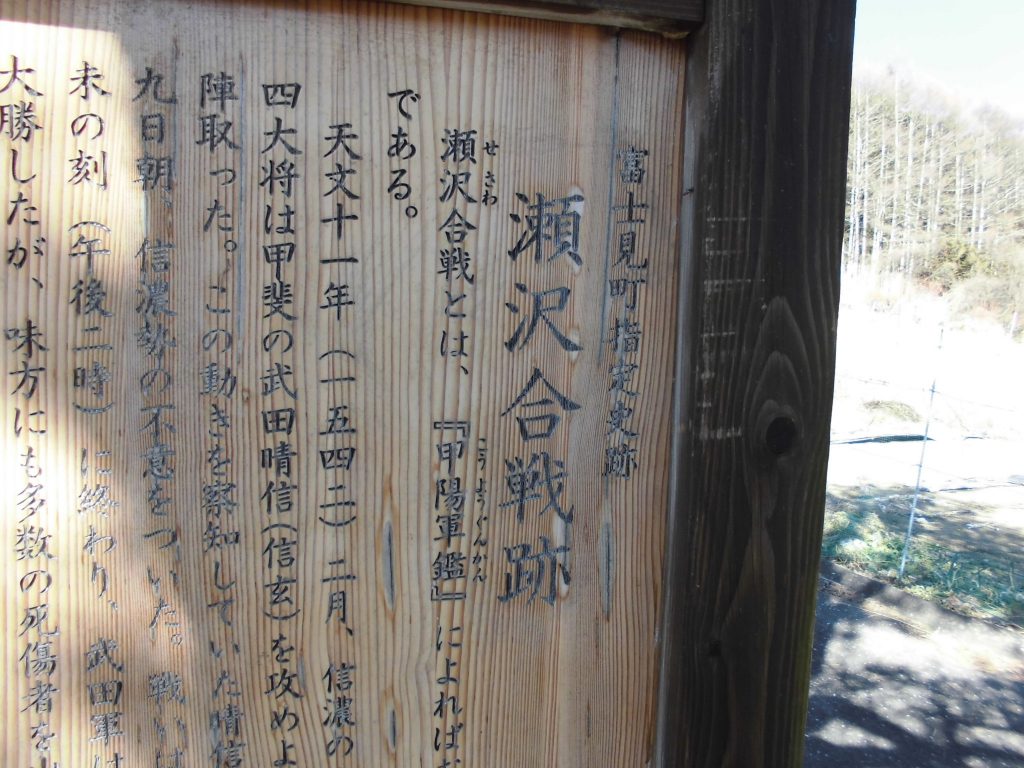 富士見町指定史跡
瀬沢合戦跡
せさわ
瀬沢合戦とは、『甲陽軍鑑』によれば
こうようぐんかん
である。
天文十一年（一五四二）二月、信濃の
四大将は甲斐の武田晴信（信玄）を攻めよ
陣取った。この動きを察知していた晴信
九日朝、信濃勢の不意をついた。戦いは
未の刻（午後二時）に終わり、武田軍は
大勝したが、味方にも多数の死傷者を